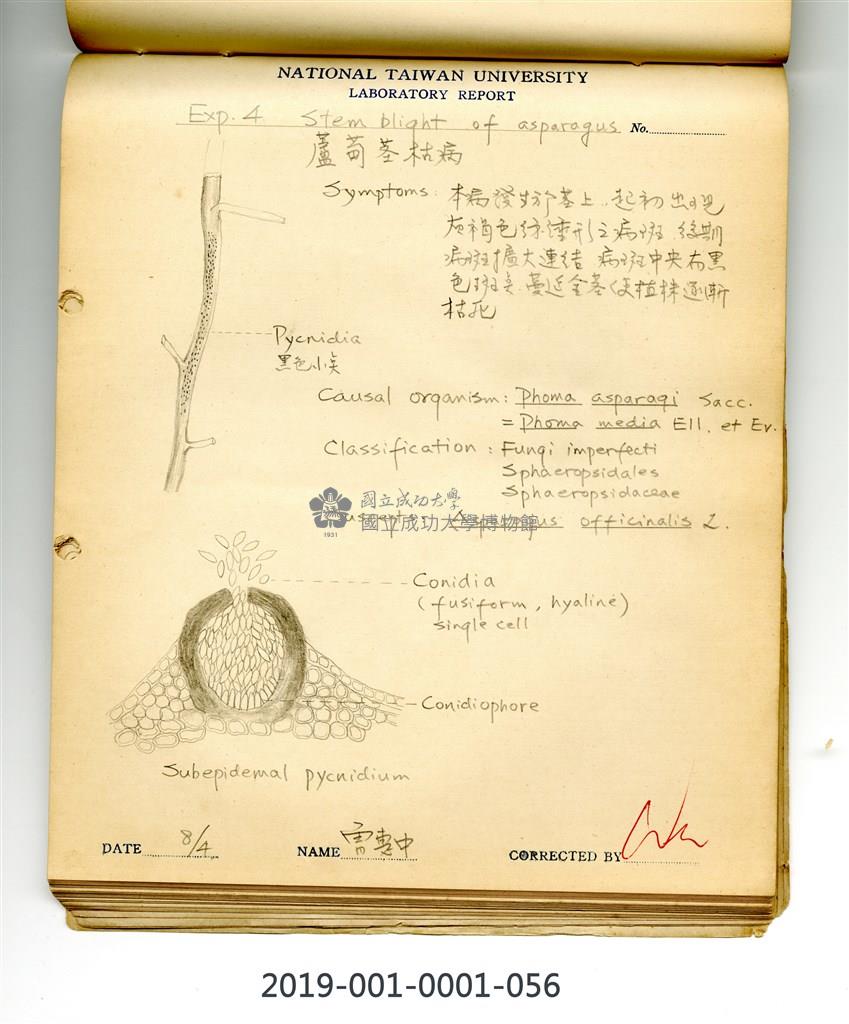 NATIONAL TAIWAN UNIVERSITY
LABORATORY REPORT
Exp. 4 Stem blight of asparagus No.
蘆筍莖枯病
Symptoms: 本病發生於莖上,起初出現
灰褐色紡錘形之病斑,後期
病斑擴大連結,病斑中央有黑
色斑点,蔓延全莖使植株逐漸
枯死
Pycnidia
黑色小点
Causal organism: Phoma asparagi Sacc.
= Phoma media Ell. et Ev.
Classification: Fungi imperfecti
Sphaeropsidales
Sphaeropsidaceae
officinalis L.
國立成功大學
國立成功大學博物館
1931
Conidia
(fusiform, hyaline)
single cell
Conidiophore
Subepidemal pycnidium
DATE 8/4 NAME 雷惠中 CORRECTED BY
2019-001-0001-056